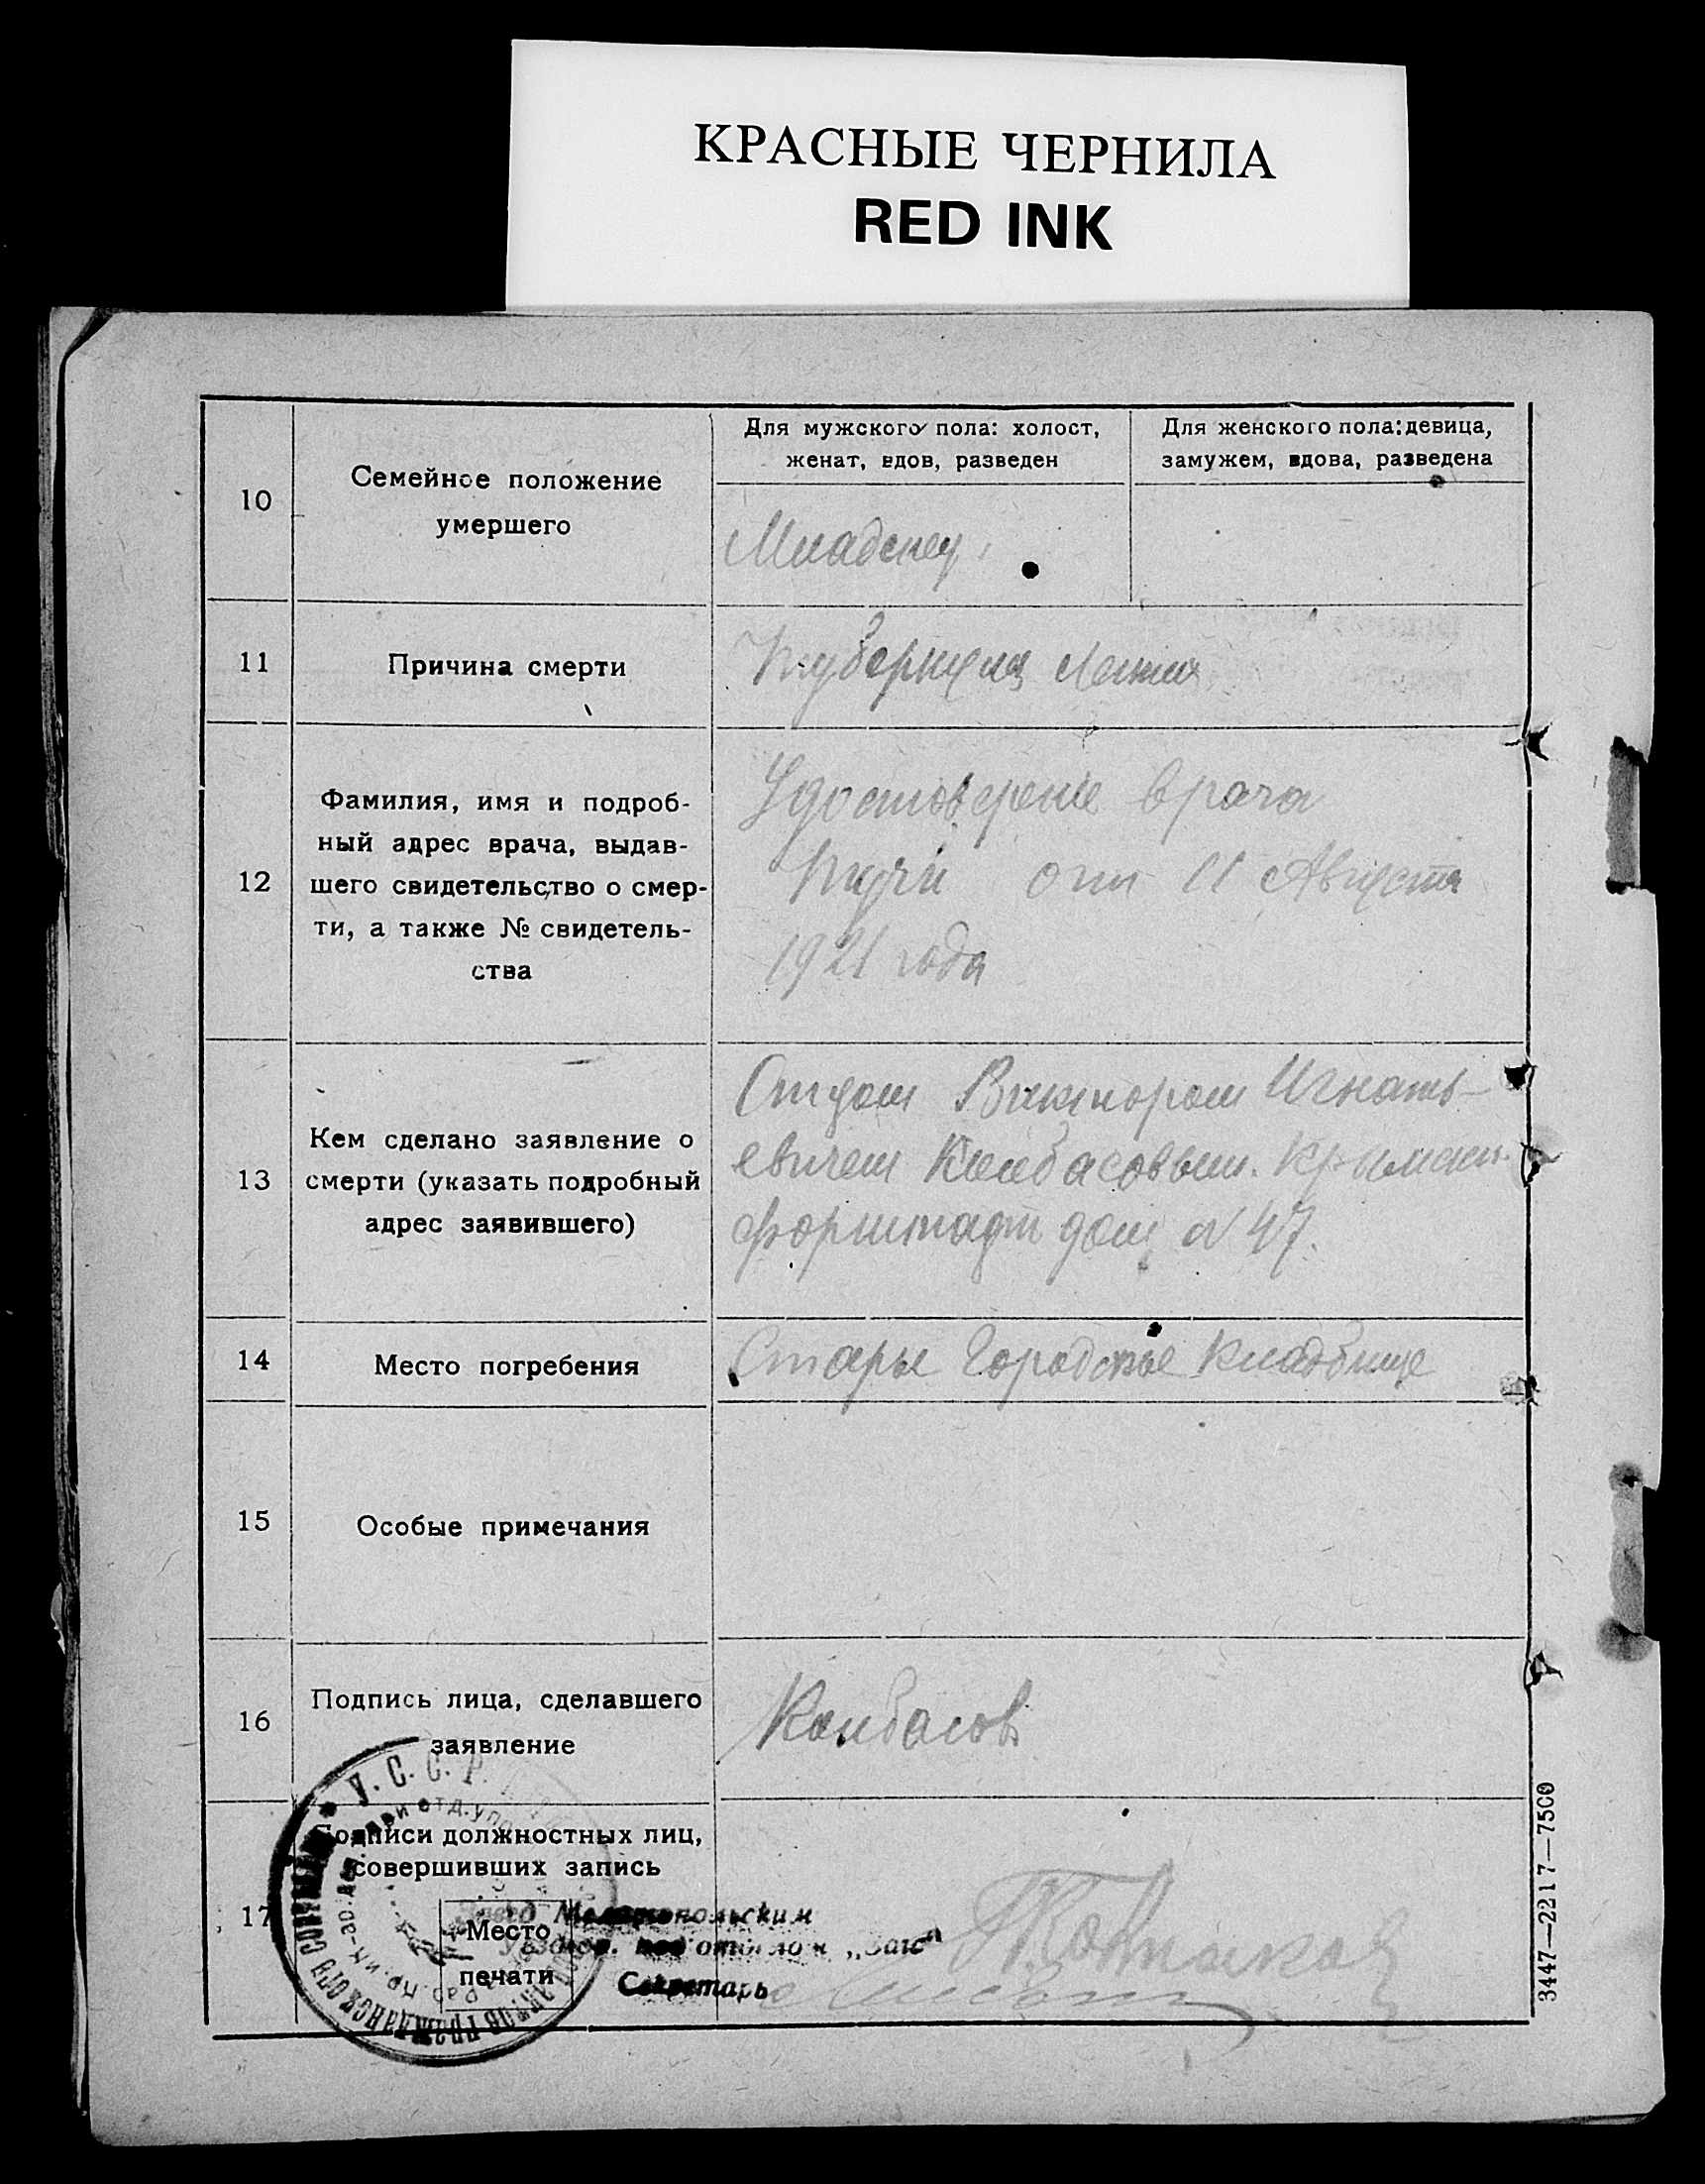 КРАСНЫЕ ЧЕРНИЛА
RED INK
10
Семейное положение
умершего
Для мужского пола: холост,
женат, вдов, разведен
Для женского пола: девица,
замужем, вдова, разведена
Младенец
11
Причина смерти
Туберкулез Легких
12
Фамилия, имя и подроб-
ный адрес врача, выдав-
шего свидетельство о смер-
ти, а также № свидетель-
ства
Удостоверение врача
от 11 Августа
1921 года
13
Кем сделано заявление о
смерти (указать подробный
адрес заявившего)
Отцом Виктором Игнать-
евичем Колбасовым. Крымски.
форштадт дом N 47.
14
Место погребения
Старые Городское Кладбище
15
Особые примечания
16
Подпись лица, сделавшего
заявление
Колбасов
17
Подписи должностных лиц,
совершивших запись
Место
печати
У. С. С. Р.
Завед Мелитопольским
под'отделом „Загс"
Секретарь
3447—2217—7500